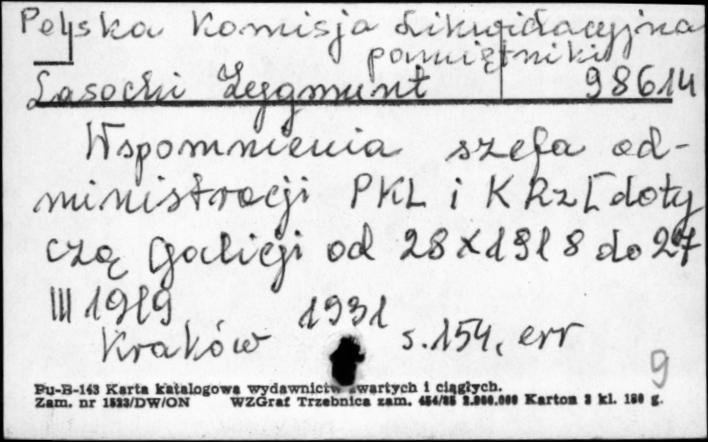 Polska Komisja Likwidacyjna
pamiętniki
Lasocki Zygmunt 98614
Wspomnienia szefa ad-
ministracji PKL i KRz[doty
czą Galicji od 28 X 1918 do 27
III 1919
Kraków 1931 s. 154, err
9
Pu-B-143 Karta katalogowa wydawnictw zwartych i ciągłych.
Zam. nr 1523/DW/ON WZGraf Trzebnica zam. 454/85 2.000.000 Karton 3 kl. 180 g.